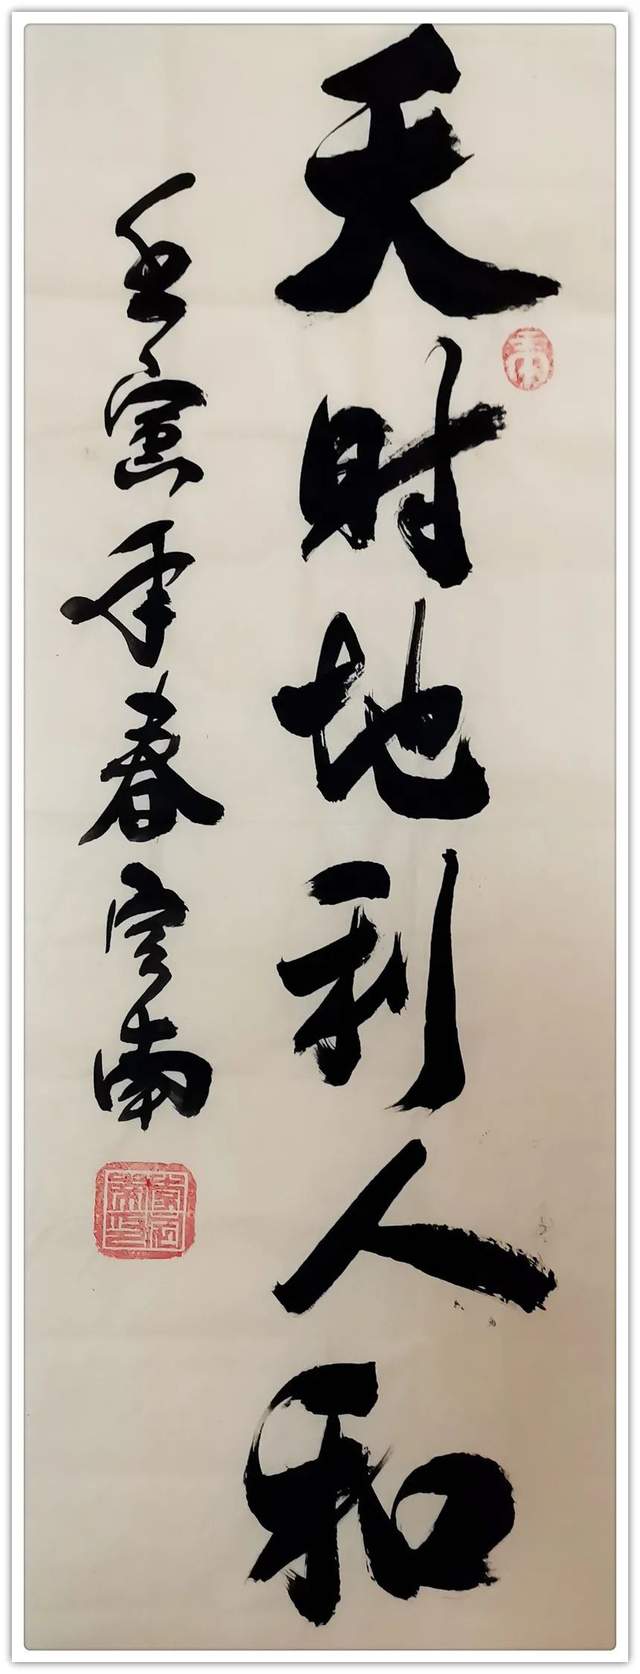 天时地利人和
壬寅年春南